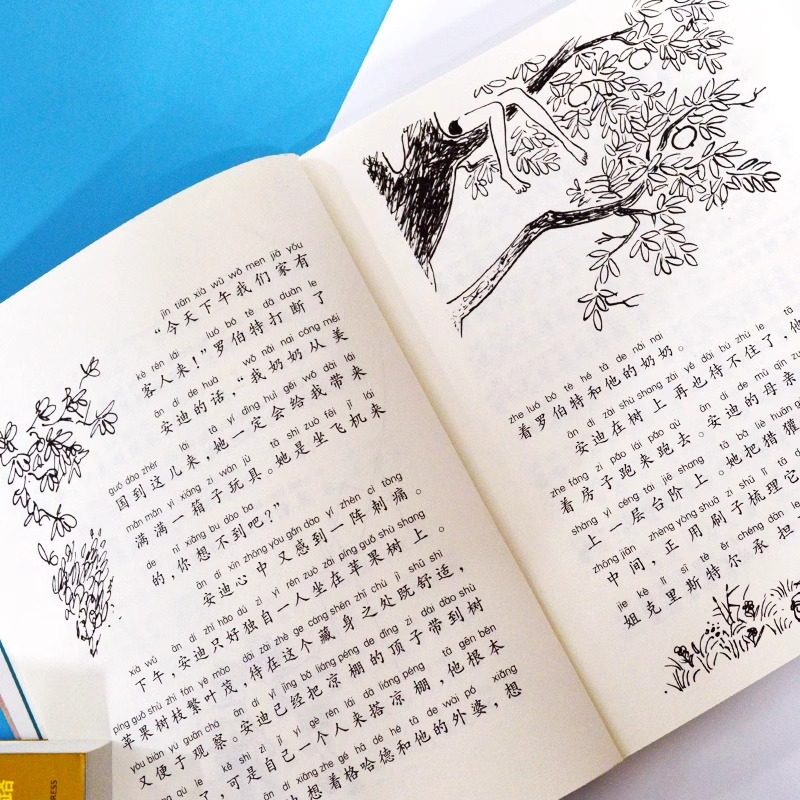 jīn tiān xià wǔ wǒ men jiā yǒu
“今天下午我们家有
kè rén lái luó bó tè dǎ duàn le
客人来！”罗伯特打断了
ān dí de huà wǒ nǎi nai cóng měi
安迪的话，“我奶奶从美
guó dào zhèr lái tā yí dìng huì gěi wǒ dài lái
国到这儿来，她一定会给我带来
mǎn mǎn yì xiāng zi wán jù tā shì zuò fēi jī lái
满满一箱子玩具。她是坐飞机来
de nǐ xiǎng bu dào ba
的，你想不到吧？”
ān dí xīn zhōng yòu gǎn dào yí zhèn cì tòng
安迪心中又感到一阵刺痛。
xià wǔ ān dí zhǐ hǎo dú zì yì rén zuò zài píng guǒ shù shang
下午，安迪只好独自一人坐在苹果树上。
píng guǒ shù zhī fán yè mào dāi zài zhè ge cáng shēn zhī chù jì shū shì
苹果树枝繁叶茂，待在这个藏身之处既舒适，
yòu biàn yú guān chá ān dí yǐ jīng bǎ liáng péng de dǐng zi dài dào shù
又便于观察。安迪已经把凉棚的顶子带到树
qù le kě shì zì jǐ yí gè rén lái dā liáng péng tā gēn běn
了，可是自己一个人来搭凉棚，他根本
ān dí xiǎng zhe gé hā dé hé tā de wài pó xiǎng
想着格哈德和他的外婆，想
zhe luó bó tè hé tā de nǎi nai
着罗伯特和他的奶奶。
ān dí zài shù shang zài yě dāi bú zhù le tā
安迪在树上再也待不住了，他
zhe fáng zi pǎo lái pǎo qù ān dí de mǔ qīn zu
着房子跑来跑去。安迪的母亲
shàng yì céng tái jiē shang tā bǎ liè huān
上一层台阶上。她把猎獾
zhōng jiān zhèng yòng shuā zi shū lǐ tā
中间，正用刷子梳理它
jie kè lǐ sī tè ěr chéng dān le
姐克里斯特尔承担